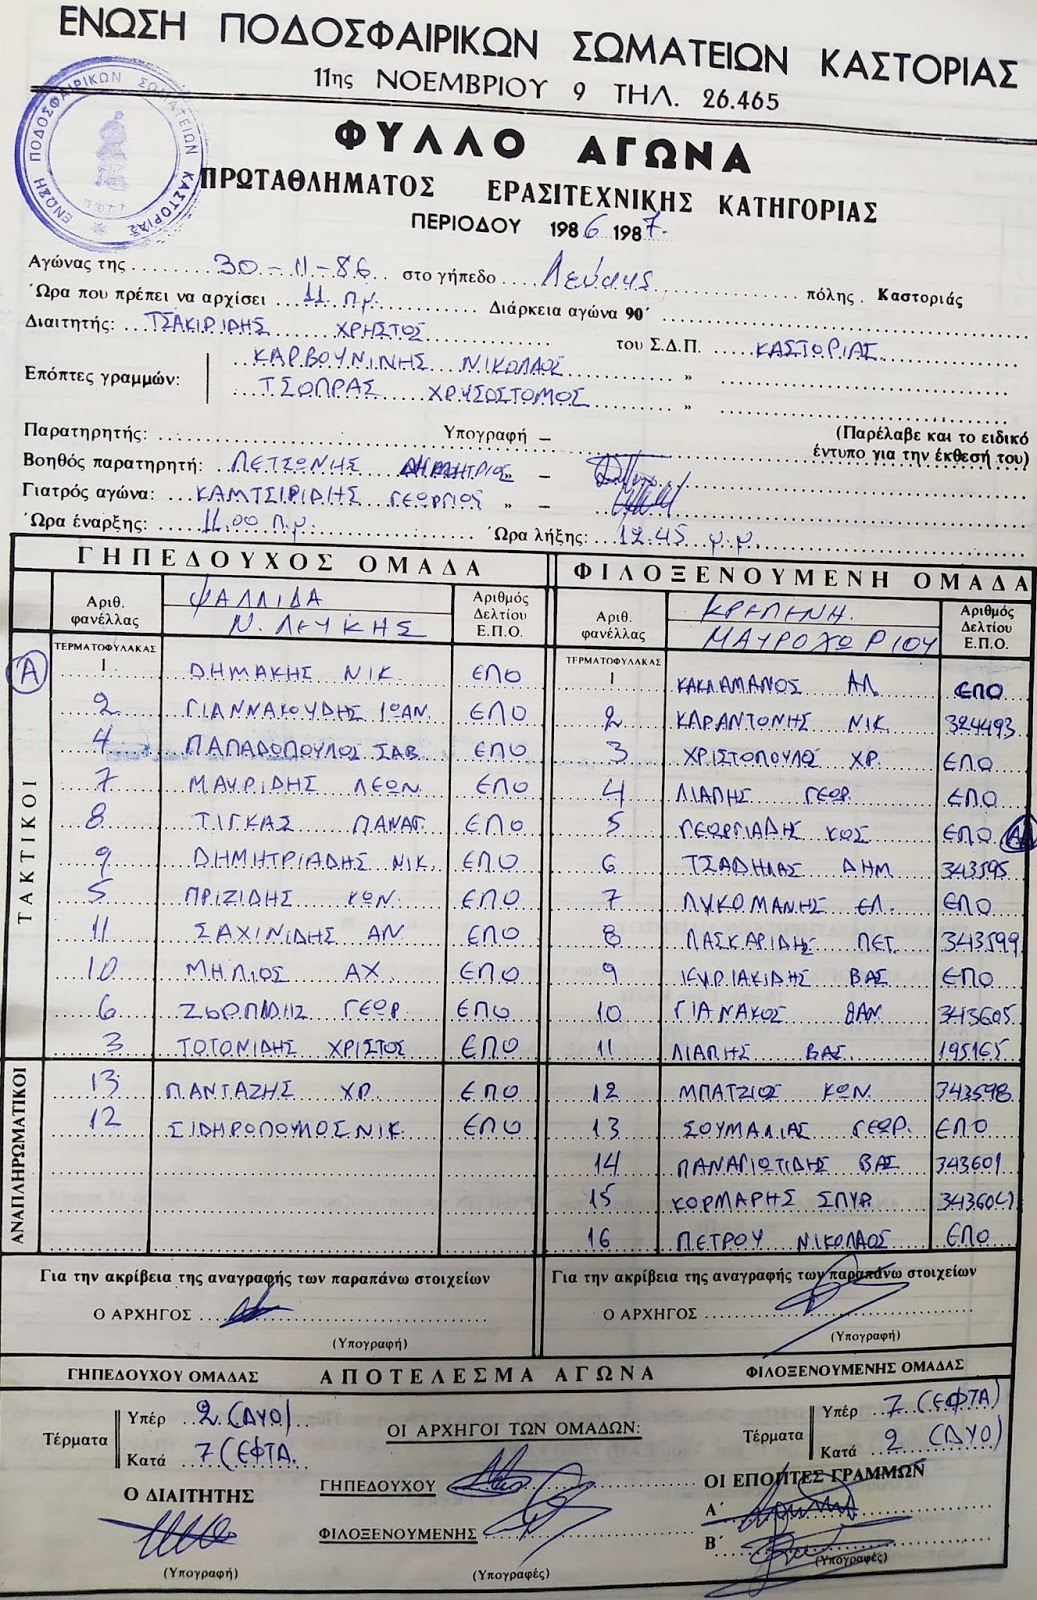 ΕΝΩΣΗ ΠΟΔΟΣΦΑΙΡΙΚΩΝ ΣΩΜΑΤΕΙΩΝ ΚΑΣΤΟΡΙΑΣ
11ης ΝΟΕΜΒΡΙΟΥ 9 ΤΗΛ. 26.465
ΕΝΩΣΗ ΠΟΔΟΣΦΑΙΡΙΚΩΝ ΣΩΜΑΤΕΙΩΝ ΚΑΣΤΟΡΙΑΣ
ΦΥΛΛΟ ΑΓΩΝΑ
ΠΡΩΤΑΘΛΗΜΑΤΟΣ ΕΡΑΣΙΤΕΧΝΙΚΗΣ ΚΑΤΗΓΟΡΙΑΣ
ΠΕΡΙΟΔΟΥ 1986 1987.
Αγώνας της 30-11-86 στο γήπεδο Λεύκης πόλης Καστοριάς
Ώρα που πρέπει να αρχίσει 11 π.μ. Διάρκεια αγώνα 90΄
Διαιτητής: ΤΣΑΚΙΡΙΔΗΣ ΧΡΗΣΤΟΣ του Σ.Δ.Π. ΚΑΣΤΟΡΙΑΣ
ΚΑΡΒΟΥΝΙΝΗΣ ΝΙΚΟΛΑΟΣ »
Επόπτες γραμμών:
ΤΣΟΠΡΑΣ ΧΡΥΣΟΣΤΟΜΟΣ »
Παρατηρητής: Υπογραφή – (Παρέλαβε και το ειδικό
έντυπο για την έκθεσή του)
Βοηθός παρατηρητή: ΠΕΤΣΩΝΗΣ ΔΗΜΗΤΡΙΟΣ » –
Γιατρός αγώνα: ΚΑΜΤΣΙΡΙΔΗΣ ΓΕΩΡΓΙΟΣ » –
Ώρα έναρξης: 11.00 π.μ. Ώρα λήξης: 12.45 μ.μ.
ΓΗΠΕΔΟΥΧΟΣ ΟΜΑΔΑ ΦΙΛΟΞΕΝΟΥΜΕΝΗ ΟΜΑΔΑ
Αριθ. φανέλλας ΨΑΛΛΙΔΑ Ν. ΛΕΥΚΗΣ Αριθμός Δελτίου Ε.Π.Ο. Αριθ. φανέλλας ΚΡΕΠΕΝΗ ΜΑΥΡΟΧΩΡΙΟΥ Αριθμός Δελτίου Ε.Π.Ο.
ΤΑΚΤΙΚΟΙ
ΤΕΡΜΑΤΟΦΥΛΑΚΑΣ ΤΕΡΜΑΤΟΦΥΛΑΚΑΣ
Α 1 ΔΗΜΑΚΗΣ ΝΙΚ. ΕΠΟ 1 ΚΑΚΛΑΜΑΝΟΣ ΑΛ ΕΠΟ
2 ΓΙΑΝΝΑΚΟΥΔΗΣ ΙΩΑΝ. ΕΠΟ 2 ΚΑΡΑΝΤΩΝΗΣ ΝΙΚ 324493
4 ΠΑΠΑΔΟΠΟΥΛΟΣ ΣΑΒ ΕΠΟ 3 ΧΡΙΣΤΟΠΟΥΛΟΣ ΧΡ. ΕΠΟ
7 ΜΑΥΡΙΔΗΣ ΛΕΩΝ ΕΠΟ 4 ΛΙΑΠΗΣ ΓΕΩΡ. ΕΠΟ
8 ΤΙΓΚΑΣ ΠΑΝΑΓ. ΕΠΟ 5 ΓΕΩΡΓΙΑΔΗΣ ΚΩΣ ΕΠΟ Α
9 ΔΗΜΗΤΡΙΑΔΗΣ ΝΙΚ. ΕΠΟ 6 ΤΣΑΔΗΛΑΣ ΔΗΜ 343595
5 ΠΡΙΖΙΔΗΣ ΚΩΝ. ΕΠΟ 7 ΛΥΚΟΜΑΝΗΣ ΕΛ. ΕΠΟ
11 ΣΑΧΙΝΙΔΗΣ ΑΝ. ΕΠΟ 8 ΠΑΣΚΑΡΙΔΗΣ ΠΕΤ. 343599
10 ΜΗΛΙΟΣ ΑΧ. ΕΠΟ 9 ΚΥΡΙΑΚΙΔΗΣ ΒΑΣ ΕΠΟ
6 ΓΕΩΡ. ΕΠΟ 10 ΓΙΑΝΑΚΟΣ ΘΑΝ 343605
3 ΤΟΤΟΝΙΔΗΣ ΧΡΙΣΤΟΣ ΕΠΟ 11 ΛΙΑΠΗΣ ΒΑΣ 195165
ΑΝΑΠΛΗΡΩΜΑΤΙΚΟΙ
13 ΠΑΝΤΑΖΗΣ ΧΡ. ΕΠΟ 12 ΜΠΑΤΖΙΟΣ ΚΩΝ. 343598
12 ΣΙΔΗΡΟΠΟΥΛΟΣ ΝΙΚ. ΕΠΟ 13 ΣΟΥΜΑΛΙΑΣ ΓΕΩΡ. ΕΠΟ
14 ΠΑΝΑΓΙΩΤΙΔΗΣ ΒΑΣ 343601
15 ΚΟΡΜΑΡΗΣ ΣΠΥΡ 343604
16 ΠΕΤΡΟΥ ΝΙΚΟΛΑΟΣ ΕΠΟ
Για την ακρίβεια της αναγραφής των παραπάνω στοιχείων Για την ακρίβεια της αναγραφής των παραπάνω στοιχείων
Ο ΑΡΧΗΓΟΣ Ο ΑΡΧΗΓΟΣ
(Υπογραφή) (Υπογραφή)
ΓΗΠΕΔΟΥΧΟΥ ΟΜΑΔΑΣ ΑΠΟΤΕΛΕΣΜΑ ΑΓΩΝΑ ΦΙΛΟΞΕΝΟΥΜΕΝΗΣ ΟΜΑΔΑΣ
Τέρματα Υπέρ 2 (ΔΥΟ) Τέρματα Υπέρ 7 (ΕΦΤΑ)
Κατά 7 (ΕΦΤΑ. ΟΙ ΑΡΧΗΓΟΙ ΤΩΝ ΟΜΑΔΩΝ: Κατά 2 (ΔΥΟ)
Ο ΔΙΑΙΤΗΤΗΣ ΓΗΠΕΔΟΥΧΟΥ ΟΙ ΕΠΟΠΤΕΣ ΓΡΑΜΜΩΝ
Α΄
ΦΙΛΟΞΕΝΟΥΜΕΝΗΣ Β΄
(Υπογραφή) (Υπογραφές) (Υπογραφές)